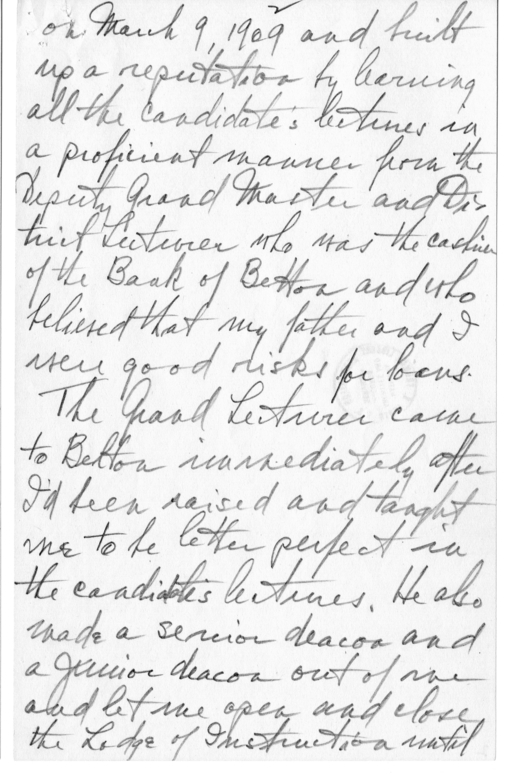 on March 9, 1909 and built
up a reputation by learning
all the candidate's lectures in
a proficient manner from the
Deputy Grand Master and Dis-
trict Lecturer who was the cashier
of the Bank of Belton and who
believed that my father and I
were good risks for loans.
The Grand Lecturer came
to Belton immediately after
I'd been raised and taught
me to be letter perfect in
the candidates lectures. He also
made a senior deacon and
a Junior deacon out of me
and let me open and close
the Lodge of Instruction until